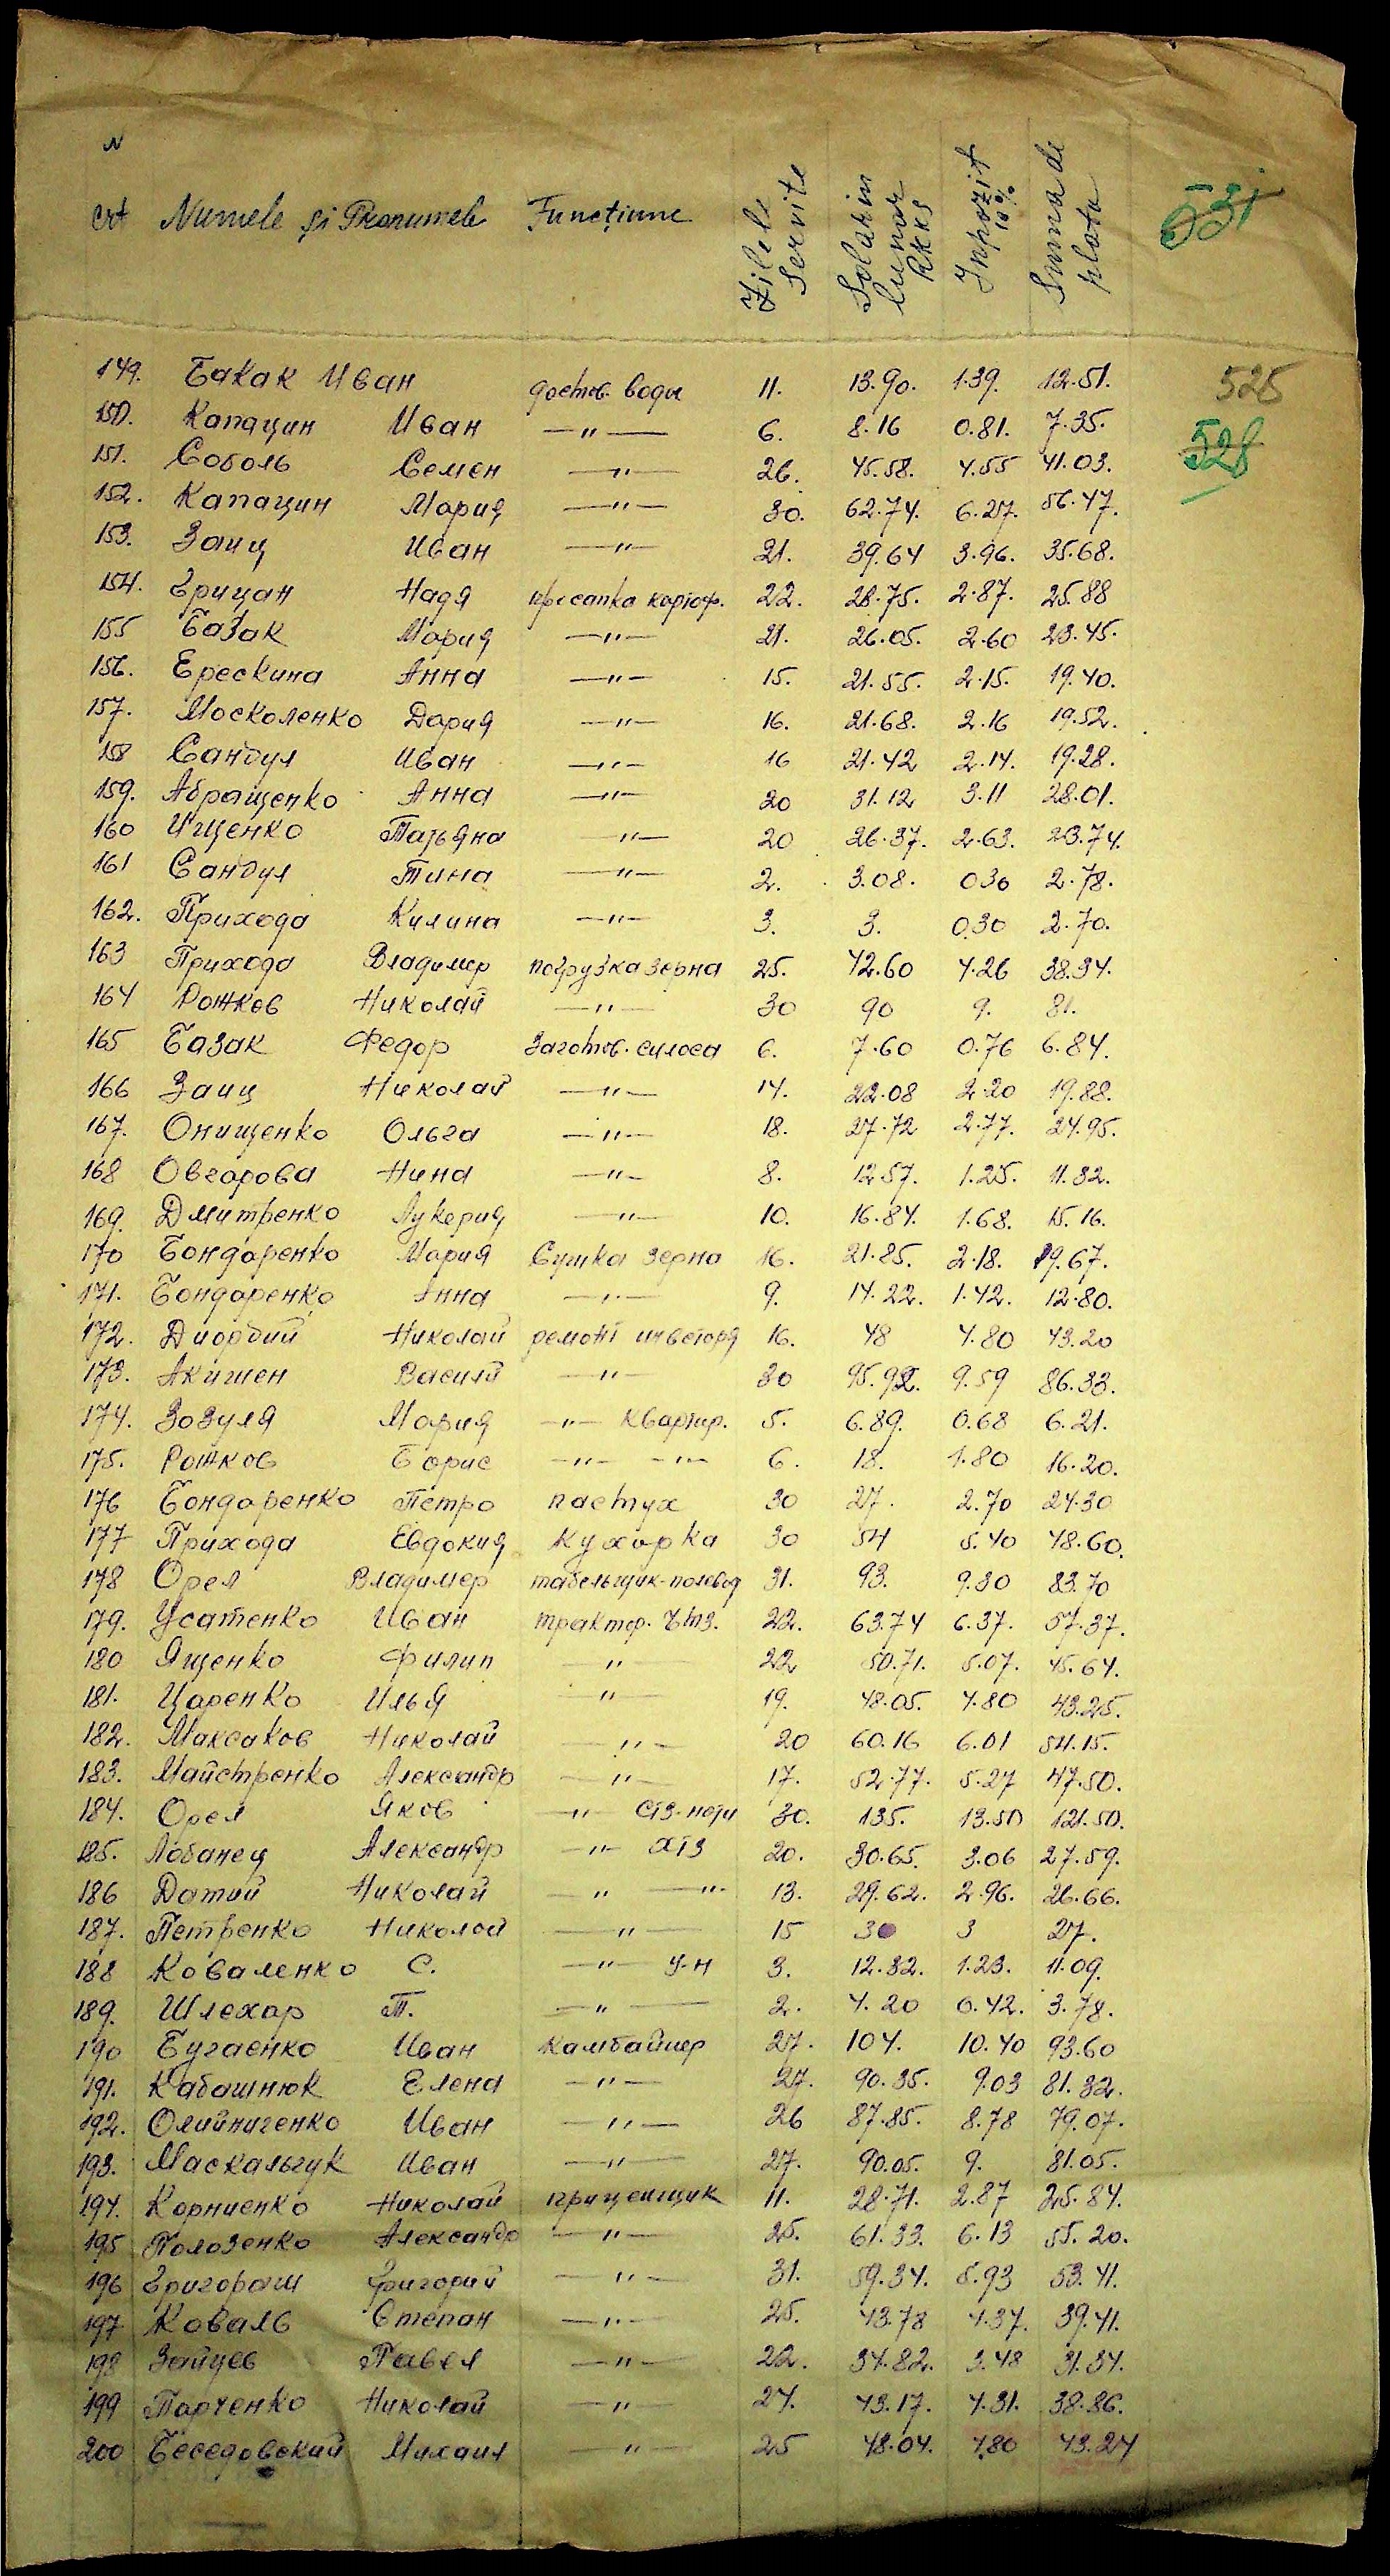 N
crt Numele și Pronumele Funcțiune Zilele Servite Solarin lunar RKKS Inpozit 10% Summa de plata 531
149. Бакак Иван достов. воды 11. 13.90. 1.39. 12.51. 525
150. Капацин Иван —"— 6. 8.16 0.81. 7.35. 528
151. Соболь Семен —"— 26. 45.58. 4.55 41.03.
152. Капацин Мария —"— 30. 62.74. 6.27. 56.47.
153. Заиц Иван —"— 21. 39.64 3.96. 35.68.
154. Грицан Надя пресапка картоф. 22. 28.75. 2.87. 25.88
155 Базак Мария —"— 21. 26.05. 2.60 23.45.
156. Ерескина Анна —"— 15. 21.55. 2.15. 19.40.
157. Москоленко Дария —"— 16. 21.68. 2.16 19.52.
158 Сандул Иван —"— 16 21.42 2.14. 19.28.
159. Абращенко Анна —"— 20 31.12 3.11 28.01.
160 Ищенко Татьяна —"— 20 26.37. 2.63. 23.74.
161 Сандул Тина —"— 2. 3.08. 030 2.78.
162. Прихода Килина —"— 3. 3. 0.30 2.70.
163 Прихода Владимер погрузка зерна 25. 42.60 4.26 38.34.
164 Рожков Николай —"— 30 90 9. 81.
165 Базак Федор Заготов. силоса 6. 7.60 0.76 6.84.
166 Заиц Николай —"— 14. 22.08 2.20 19.88.
167. Онищенко Ольга —"— 18. 27.72 2.77. 24.95.
168 Овгарова Нина —"— 8. 12.57. 1.25. 11.32.
169. Дмитренко Лукерия —"— 10. 16.84. 1.68. 15.16.
170 Бондаренко Мария Сушка зерна 16. 21.85. 2.18. 19.67.
171. Бондаренко Анна —"— 9. 14.22. 1.42. 12.80.
172. Диордий Николай ремонт инветоря 16. 48 4.80 43.20
173. Акишен Василй —"— 30 95.92. 9.59 86.33.
174. Зозуля Мария —"— квартир. 5. 6.89. 0.68 6.21.
175. Рожков Борис —"— —"— 6. 18. 1.80 16.20.
176 Бондаренко Петро пастух 30 27. 2.70 24.30
177 Прихода Евдокия Кухорка 30 54 5.40 48.60.
178 Орел Владимер табельщик-полевод 31. 93. 9.30 83.70
179. Усатенко Иван трактор. Чтз. 22. 63.74 6.37. 57.37.
180 Ященко Филип —"— 22 50.71. 5.07. 45.64.
181. Царенко Илья —"— 19. 48.05. 4.80 43.25.
182. Максаков Николай —"— 20 60.16 6.01 54.15.
183. Майстренко Александр —"— 17. 52.77. 5.27 47.50.
184. Орел Яков —"— СТЗ-нати 30. 135. 13.50 121.50.
185. Лобанец Александр —"— АТЗ 20. 30.65. 3.06 27.59.
186 Датий Николай —"— —"— 13. 29.62. 2.96. 26.66.
187. Петренко Николай —"— 15 30 3 27.
188 Коваленко С. —"— У-н 3. 12.32. 1.23. 11.09.
189. Шлехар Т. —"— 2. 4.20 0.42. 3.78.
190 Бугаенко Иван Камбайнер 27. 104. 10.40 93.60
191. Кабашнюк Елена —"— 27. 90.35. 9.03 81.32.
192. Олийниченко Иван —"— 26 87.85. 8.78 79.07.
193. Маскальчук Иван —"— 27. 90.05. 9. 81.05.
194. Корниенко Николай прицепщик 11. 28.71. 2.87 25.84.
195 Полозенко Александр —"— 25. 61.33. 6.13 55.20.
196 Григораш Григорий —"— 31. 59.34. 5.93 53.41.
197 Коваль Степан —"— 25. 43.78 4.37. 39.41.
198 Зайцев Павел —"— 22. 34.82. 3.48 31.34.
199 Парченко Николай —"— 24. 43.17. 4.31. 38.86.
200 Беседовский Михаил —"— 25 48.04. 4.80 43.24